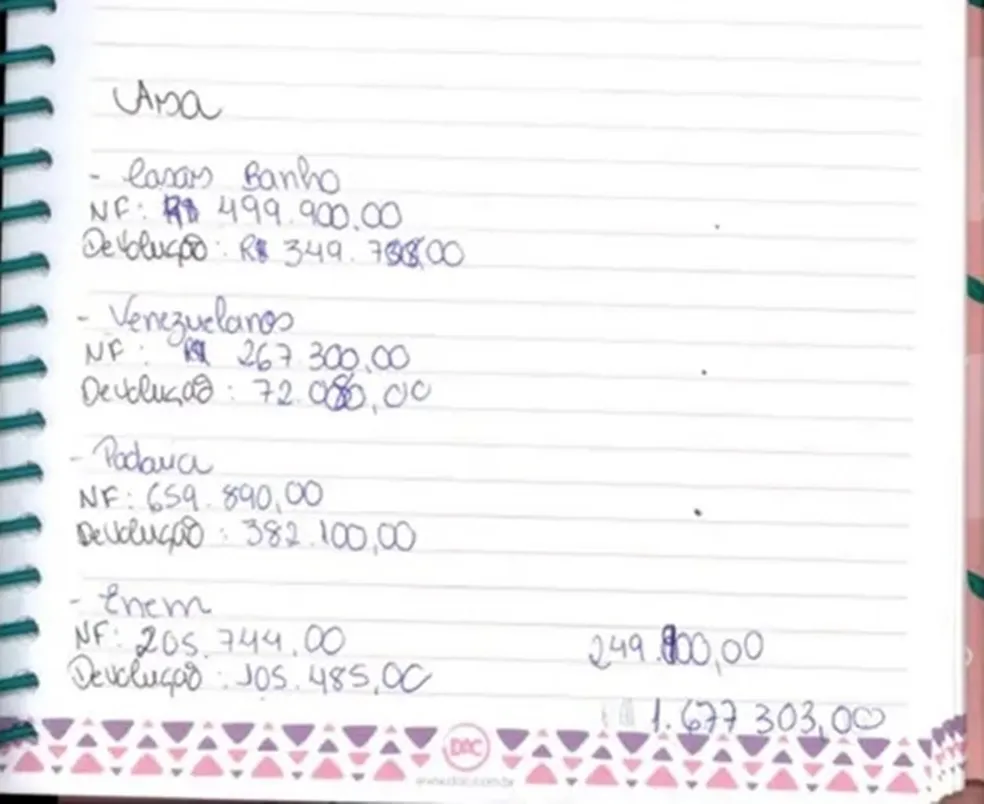 - Casas Banho
NF: R$ 499.900,00
Devolução: R$ 349.
- Venezuelanos
NF: R$ 267.300,00
Devolução: 72.080,00
- Padaria
NF: 659.890,00
Devolução: 382.100,00
- Enem
NF: 205.744,00
249.800,00
Devolução: 105.485,00
1.677.303,00
DAC
www.dac.com.br